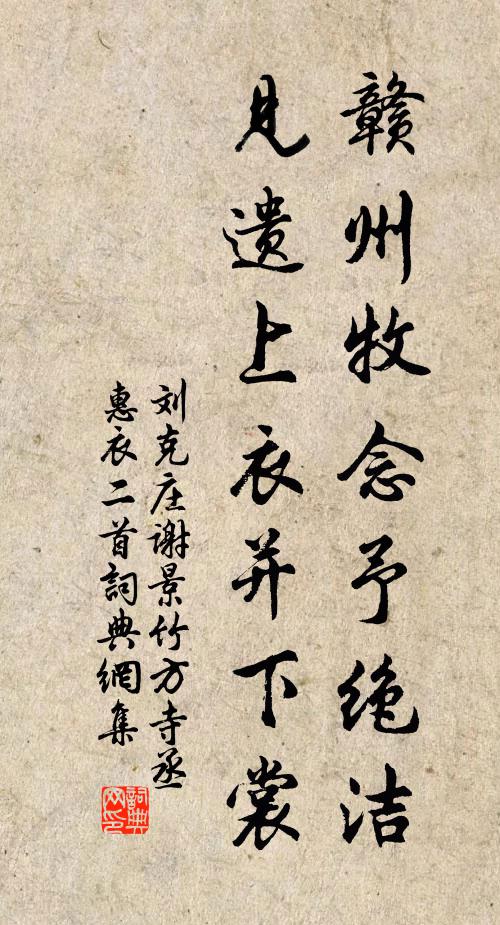 赣州牧念予绝洁
见遗上衣并下裳
刘克庄谢景竹方寺丞
惠衣二首詞典網集
詞典
网印